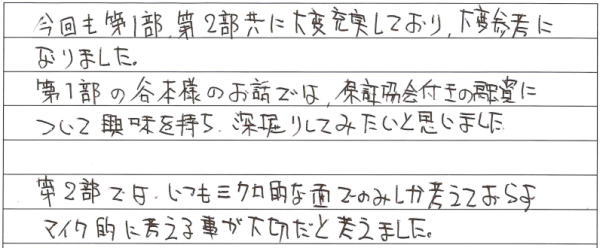 今回も第1部、第2部共に大変充実しており、大変参考に
なりました。
第1部の谷本様のお話では、保証協会付きの融資に
ついて興味を持ち、深掘りしてみたいと思いました
第2部では、いつもミクロ的な面でのみしか考えておらず
マイク的に考える事が大切だと考えました。